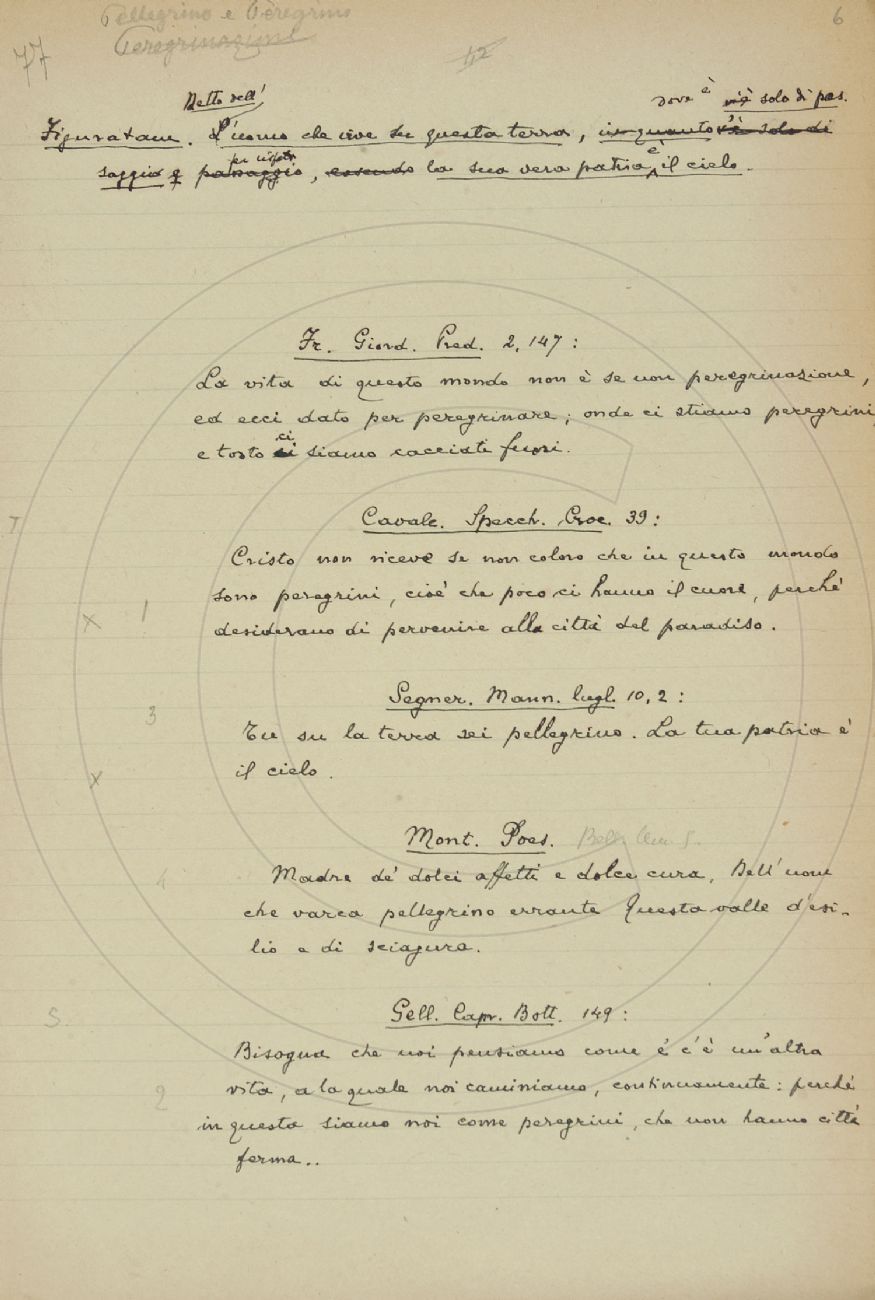 Pellegrino e Peregrino
Peregrinazione
6
77
42
Detto dell'
dove è v'è solo di pas.
Figuratam. L'uomo che vive su questa terra, in quanto v'è solo di
per rispetto
è
saggio e passaggio, essendo la sua vera patria il cielo.
Fr. Giord. Pred. 2, 147:
La vita di questo mondo non è se non peregrinazione,
ed ecci dato per peregrinare; onde ci stiamo peregrini,
ci
e tosto si siamo cacciati fuori.
Cavalc. Specch. Croc. 39:
T
Cristo non riceve se non coloro che in questo mondo
sono peregrini, cioè che poco ci hanno il cuore, perché
x 1
desiderano di pervenire alla città del paradiso.
Segner. Mann. lugl. 10, 2:
3
Tu su la terra sei pellegrino. La tua patria è
il cielo.
x
Mont. Poes.
4
Madre de' dolci affetti e dolce cura, Dell'uom
che varca pellegrino errante Questa valle d'esi-
lio e di sciagura.
5.
Gell. Capr. Bott. 149:
Bisogna che noi pensiamo come é c'è un'altra
2
vita, a la quale noi caminiamo, continuamente: perché
in questa siamo noi come peregrini, che non hanno città
ferma..